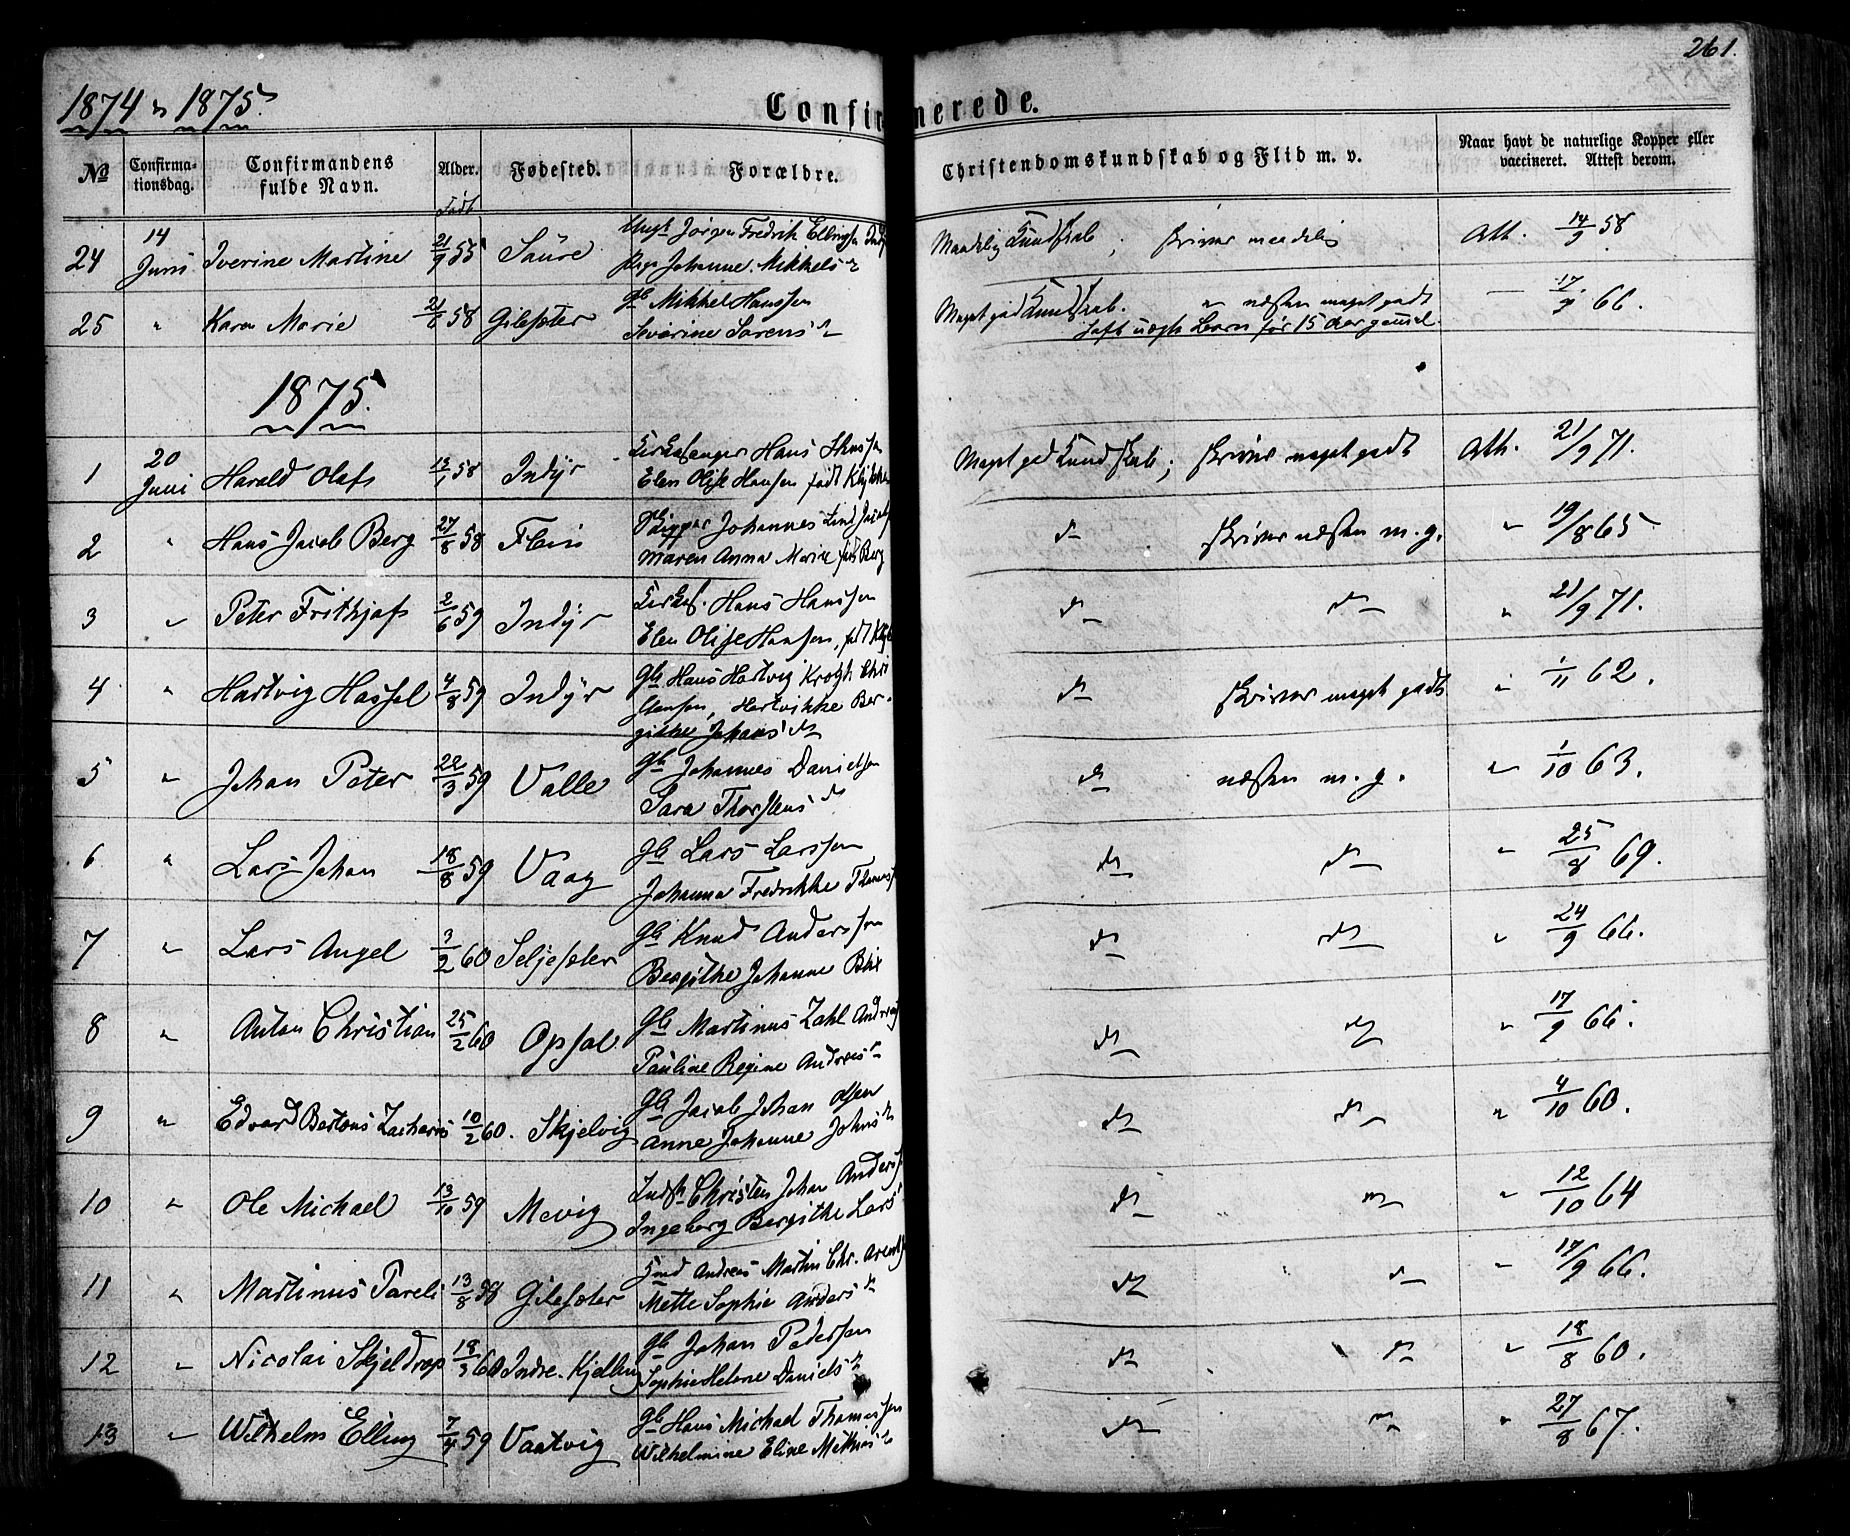 261.
1874 & 1875.
Confirmerede.
No Confirmationsdag. Confirmandens fulde Navn. Alder. Fødested. Forældre. Christendomskundskab og Flid m. v. Naar havt de naturlige Kopper eller vaccineret. Attest derom.
Født
24 14 Juni Iverine Martine 21/9 55 Saure Ungk Jørgen Fredrik Ellingsen
Pige Johanne Mikkelsdr
Maadelig Kundskab; skriver maadelig Att. 14/9 58
25 " Karen Marie 21/8 58 Gilesæter gb Mikkel Hanssen
Severine Sørensdr
Meget god Kundskab. næsten meget godt 17/9 66.
1875.
1 20 Juni Harald Olafs 13/1 58 Indyr Kirkesanger Hans Hanssen
Elen Olise Hansen født
Meget god Kundskab; skriver meget godt Att. 21/9 71.
2 " Hans Jacob Berg 27/8 58 Flein Skipper Johannes Lind
Maren Anna Marie født Berg
do skriver næsten m. g. " 19/8 65
3 " Peter Frithjofs 2/6 59 Indyr Kirkes. Hans Hanssen
Elen Olise Hansen, født
do do " 21/9 71.
4 " Hartvig Hassel 4/8 59 Indyr gb Hans Hartvig Krogh Chri
stensen, Hartvikke Ber-
gitte Johansdr
do skriver meget godt " 1/11 62.
5 " Johan Peter 22/3 59 Valle gb Johannes Danielsen
Sara Thorstensdr
do næsten m. g. " 1/10 63.
6 " Lars Johan 18/8 59 Vaag gb Lars Larssen
Johanna Fredrikke
do do " 25/8 69.
7 " Lars Angel 3/2 60 Seljesæter gb Knud Anderssen
Bergithe Johanne Blix
do do " 24/9 66.
8 " Anton Christian 25/2 60 Opsal gb Martinus Zahl
Pauline Regine Andreasdr
do do " 17/9 66.
9 " Edvard Bertous Zacharis 10/2 60. Skjelvig gb Jacob Johan Olsen
Anne Johanne Johnsdr
do do " 4/10 60.
10 " Ole Michael 13/10 59 Mevig Indst Christen Johan Anderss
Ingeborg Bergithe Lars
do " 12/10 64
11 " Martinus Pareli 13/8 58 Gilesæter Andreas Martin Chr.
Mette Sophie Andersdr
do do " 17/9 66.
12 " Nicolai Skjeldrop 18/3 60 Indre-Kjelling gb Johan Pedersen
Sophie Helene Danielsdr
do do " 18/8 60.
13 " Wilhelm Elling 7/4 59 Vaatvig gb Hans Michael Thomassen
Wilhelmine Eline
do " 27/8 67.